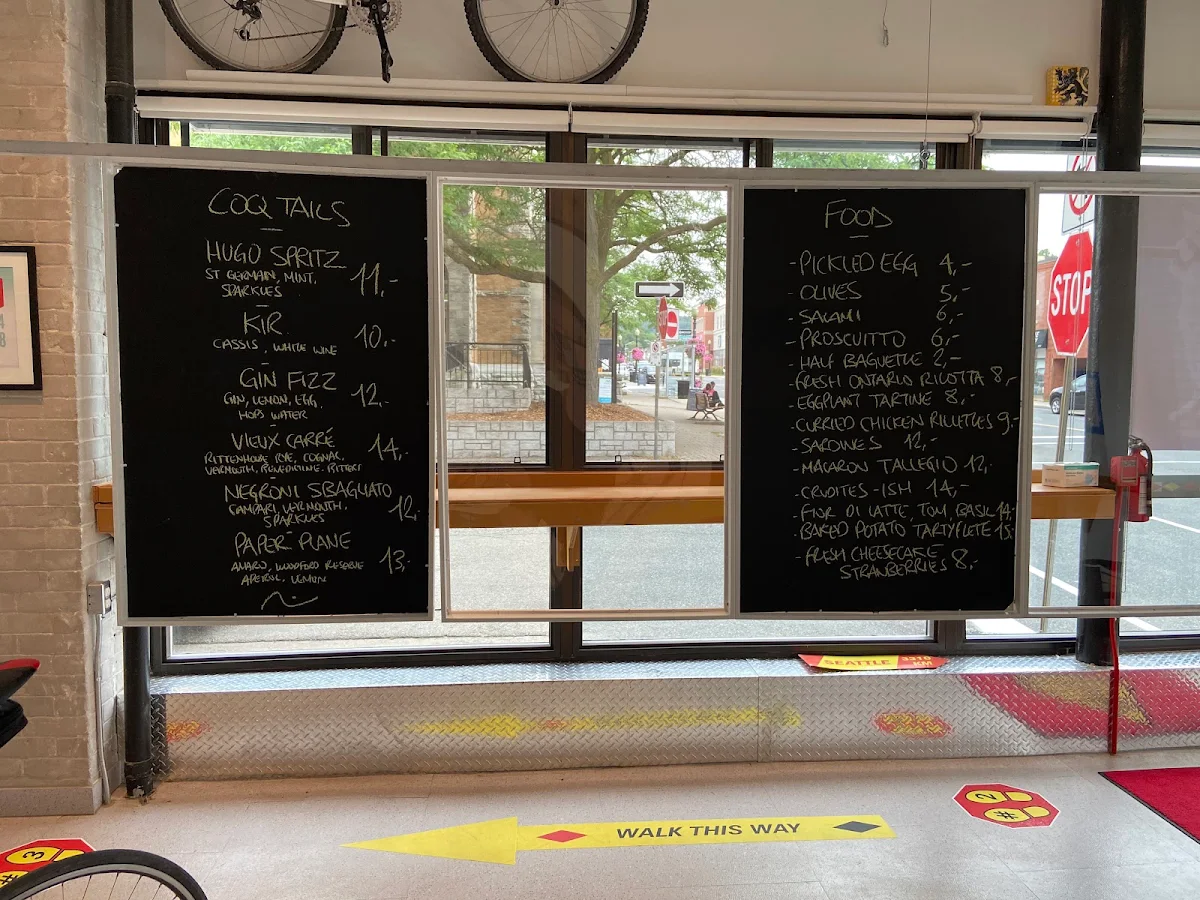 COCQTAILS
HUGO SPRITZ
ST GERMAIN, MINT, 11,-
SPARKLES
KIR
CASSIS, WHITE WINE 10,-
GIN FIZZ
GIN, LEMON, EGG, 12,-
HOPS WATER
VIEUX CARRÉ 14,-
RITTENHOUSE RYE, COGNAC,
VERMOUTH, BENEDICTINE, BITTERS
NEGRONI SBAGLIATO
CAMPARI, VERMOUTH, 12,-
SPARKLES
PAPER PLANE
AMARO, WOODFORD RESERVE 13,-
APEROL, LEMON
FOOD
- PICKLED EGG 4,-
- OLIVES 5,-
- SALAMI 6,-
- PROSCUITTO 6,-
- HALF BAGUETTE 2,-
- FRESH ONTARIO RICOTTA 8,-
- EGGPLANT TARTINE 8,-
- CURRIED CHICKEN RILLETTES 9,-
- SARDINES 12,-
- MACARON TALLEGIO 12,-
- CRUDITES-ISH 14,-
- FIOR DI LATTE, TOM, BASIL 14,-
- BAKED POTATO TARTYFLETE 15,-
- FRESH CHEESECAKE
STRAWBERRIES 8,-
STOP
SEATTLE 3310 KM
WALK THIS WAY
#2
#3